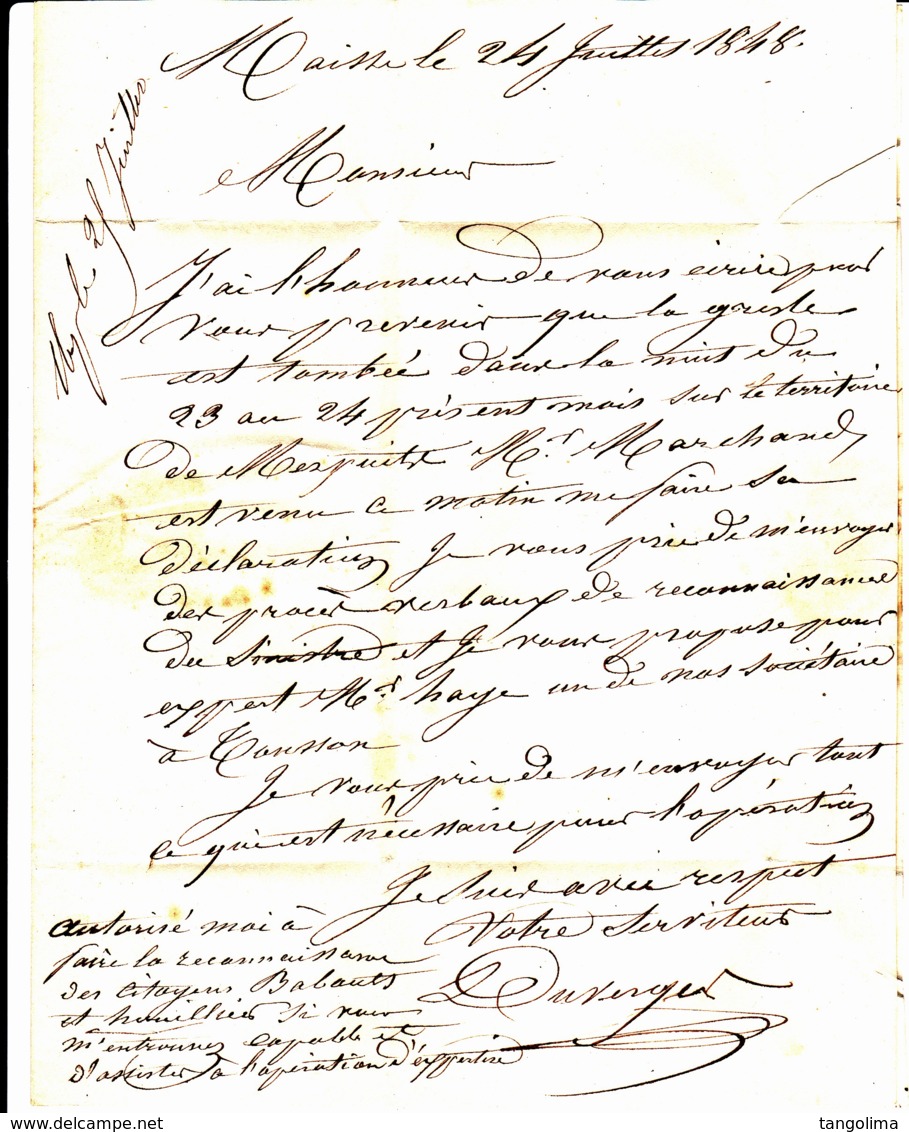 Maisse le 24 Juillet 1848.
Rep le 25 Juillet
Monsieur
J'ai l'honneur de vous écrire pour
vous prevenir que la grele
est tombée dans la nuit du
23 au 24 présent mois sur le territoire
de Mespuits Mr. Marchand
est venu ce matin me faire sa
déclaration Je vous prie de m'envoyer
des procès verbaux de reconnaissance
du Sinistre et Je vous propose pour
expert Mr. haye un de nos sociétaire
à Tousson
Je vous prie de m'envoyer tout
ce qui est nécessaire pour l'opération
Je Suis avec respect
Votre Serviteur
Duverger
autorisé moi à
faire la reconnaissance
des citoyens Babault
et houillier si vous
m'en trouvez capable et
d'assister à l'opération d'éxpertise
tangolima